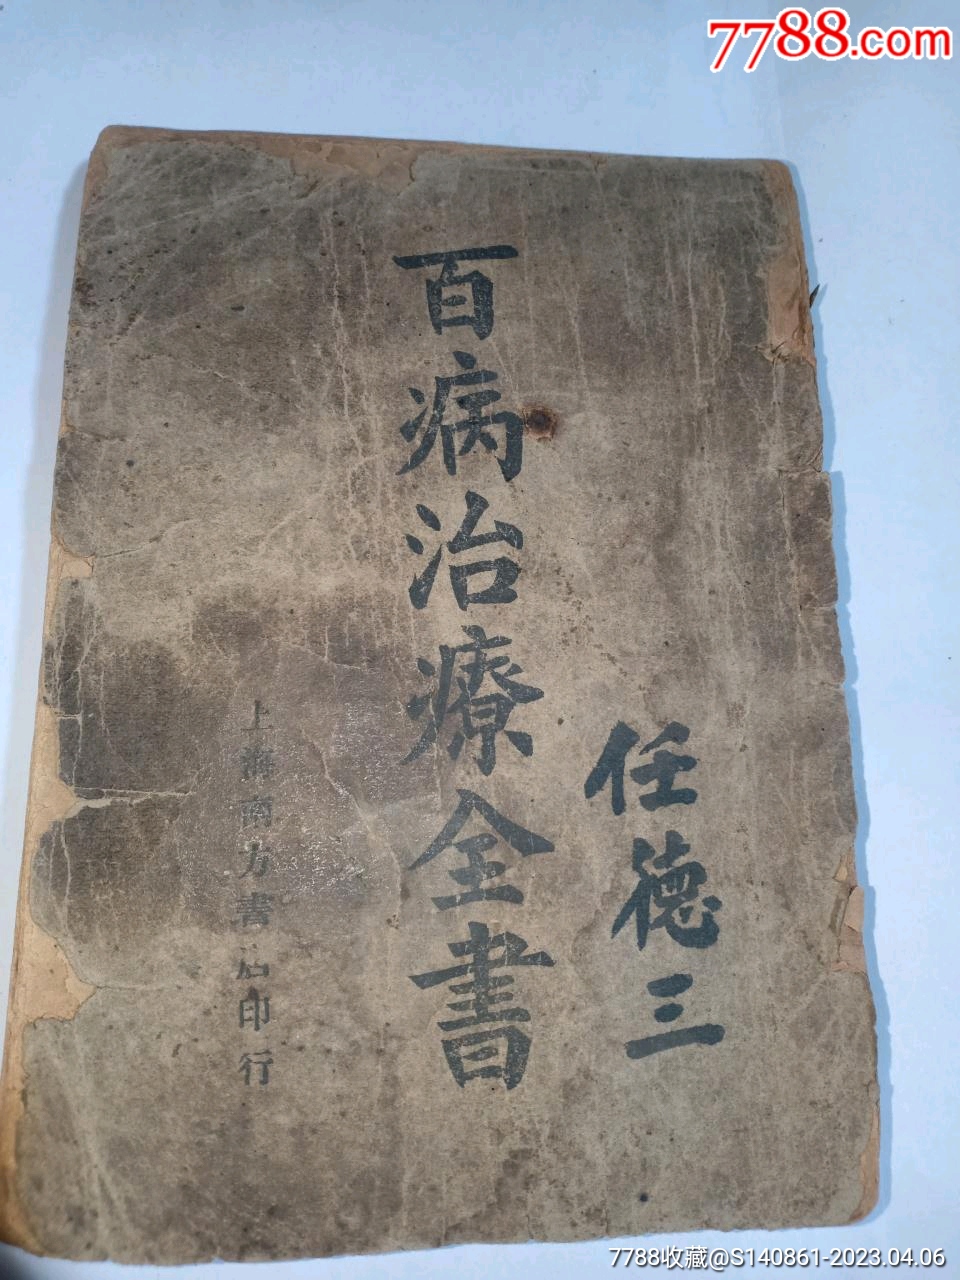 7788.com
任德三
百病治療全書
上海南方書店印行
7788收藏@S140861-2023.04.06